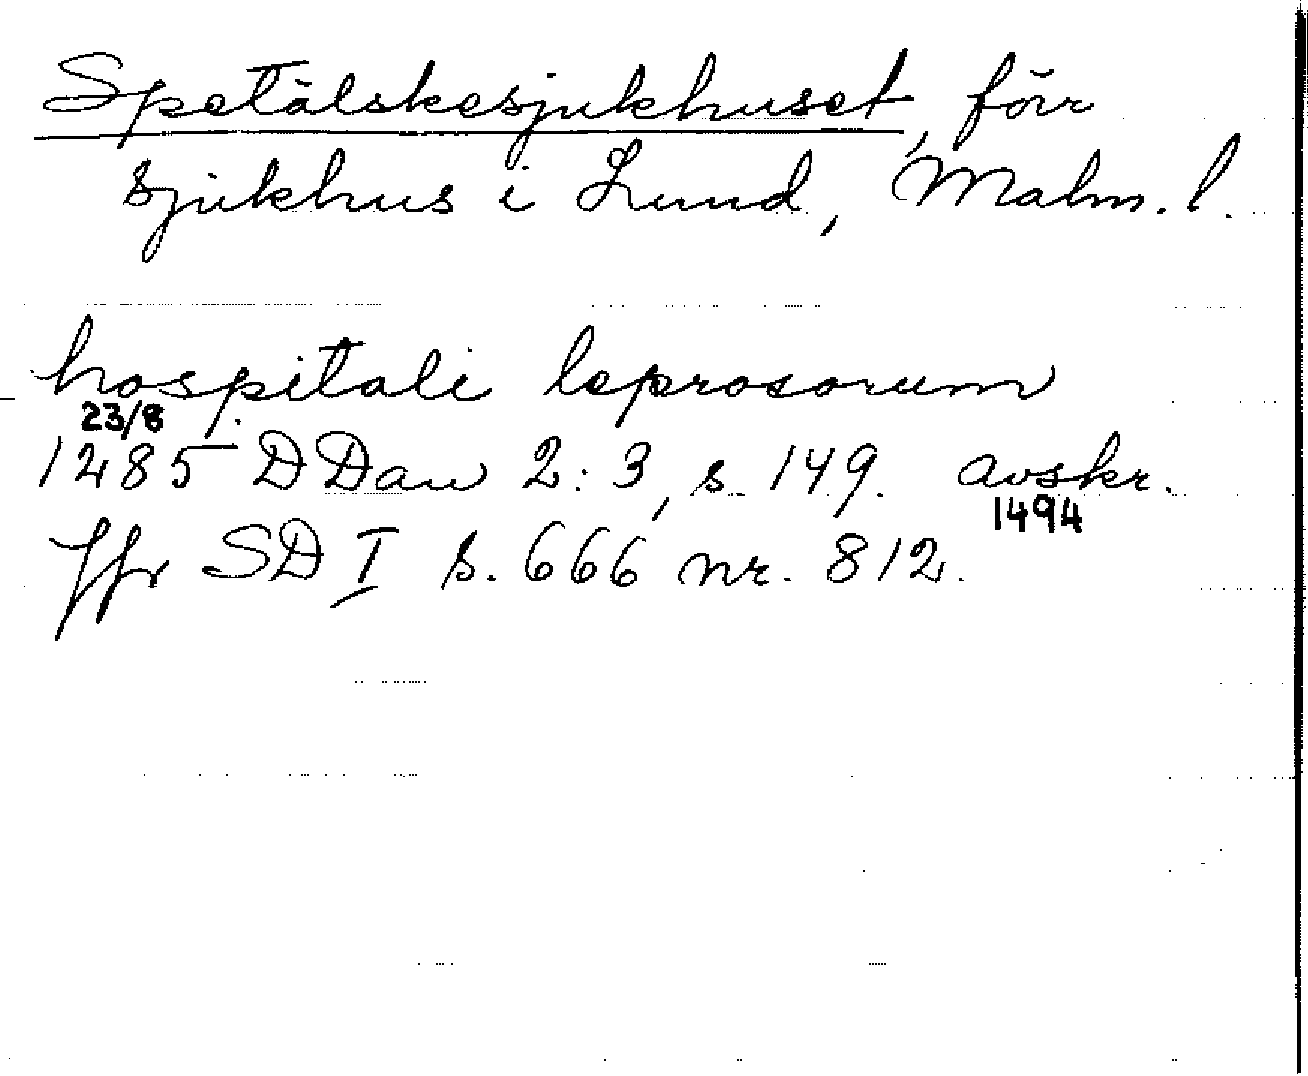 Spetälskesjukhuset, förr
sjukhus i Lund, Malm. l.
hospitali leprosorum
23/8
1285 DDan 2:3, s. 149. avskr.
1494
Jfr SD I s. 666 nr. 812.